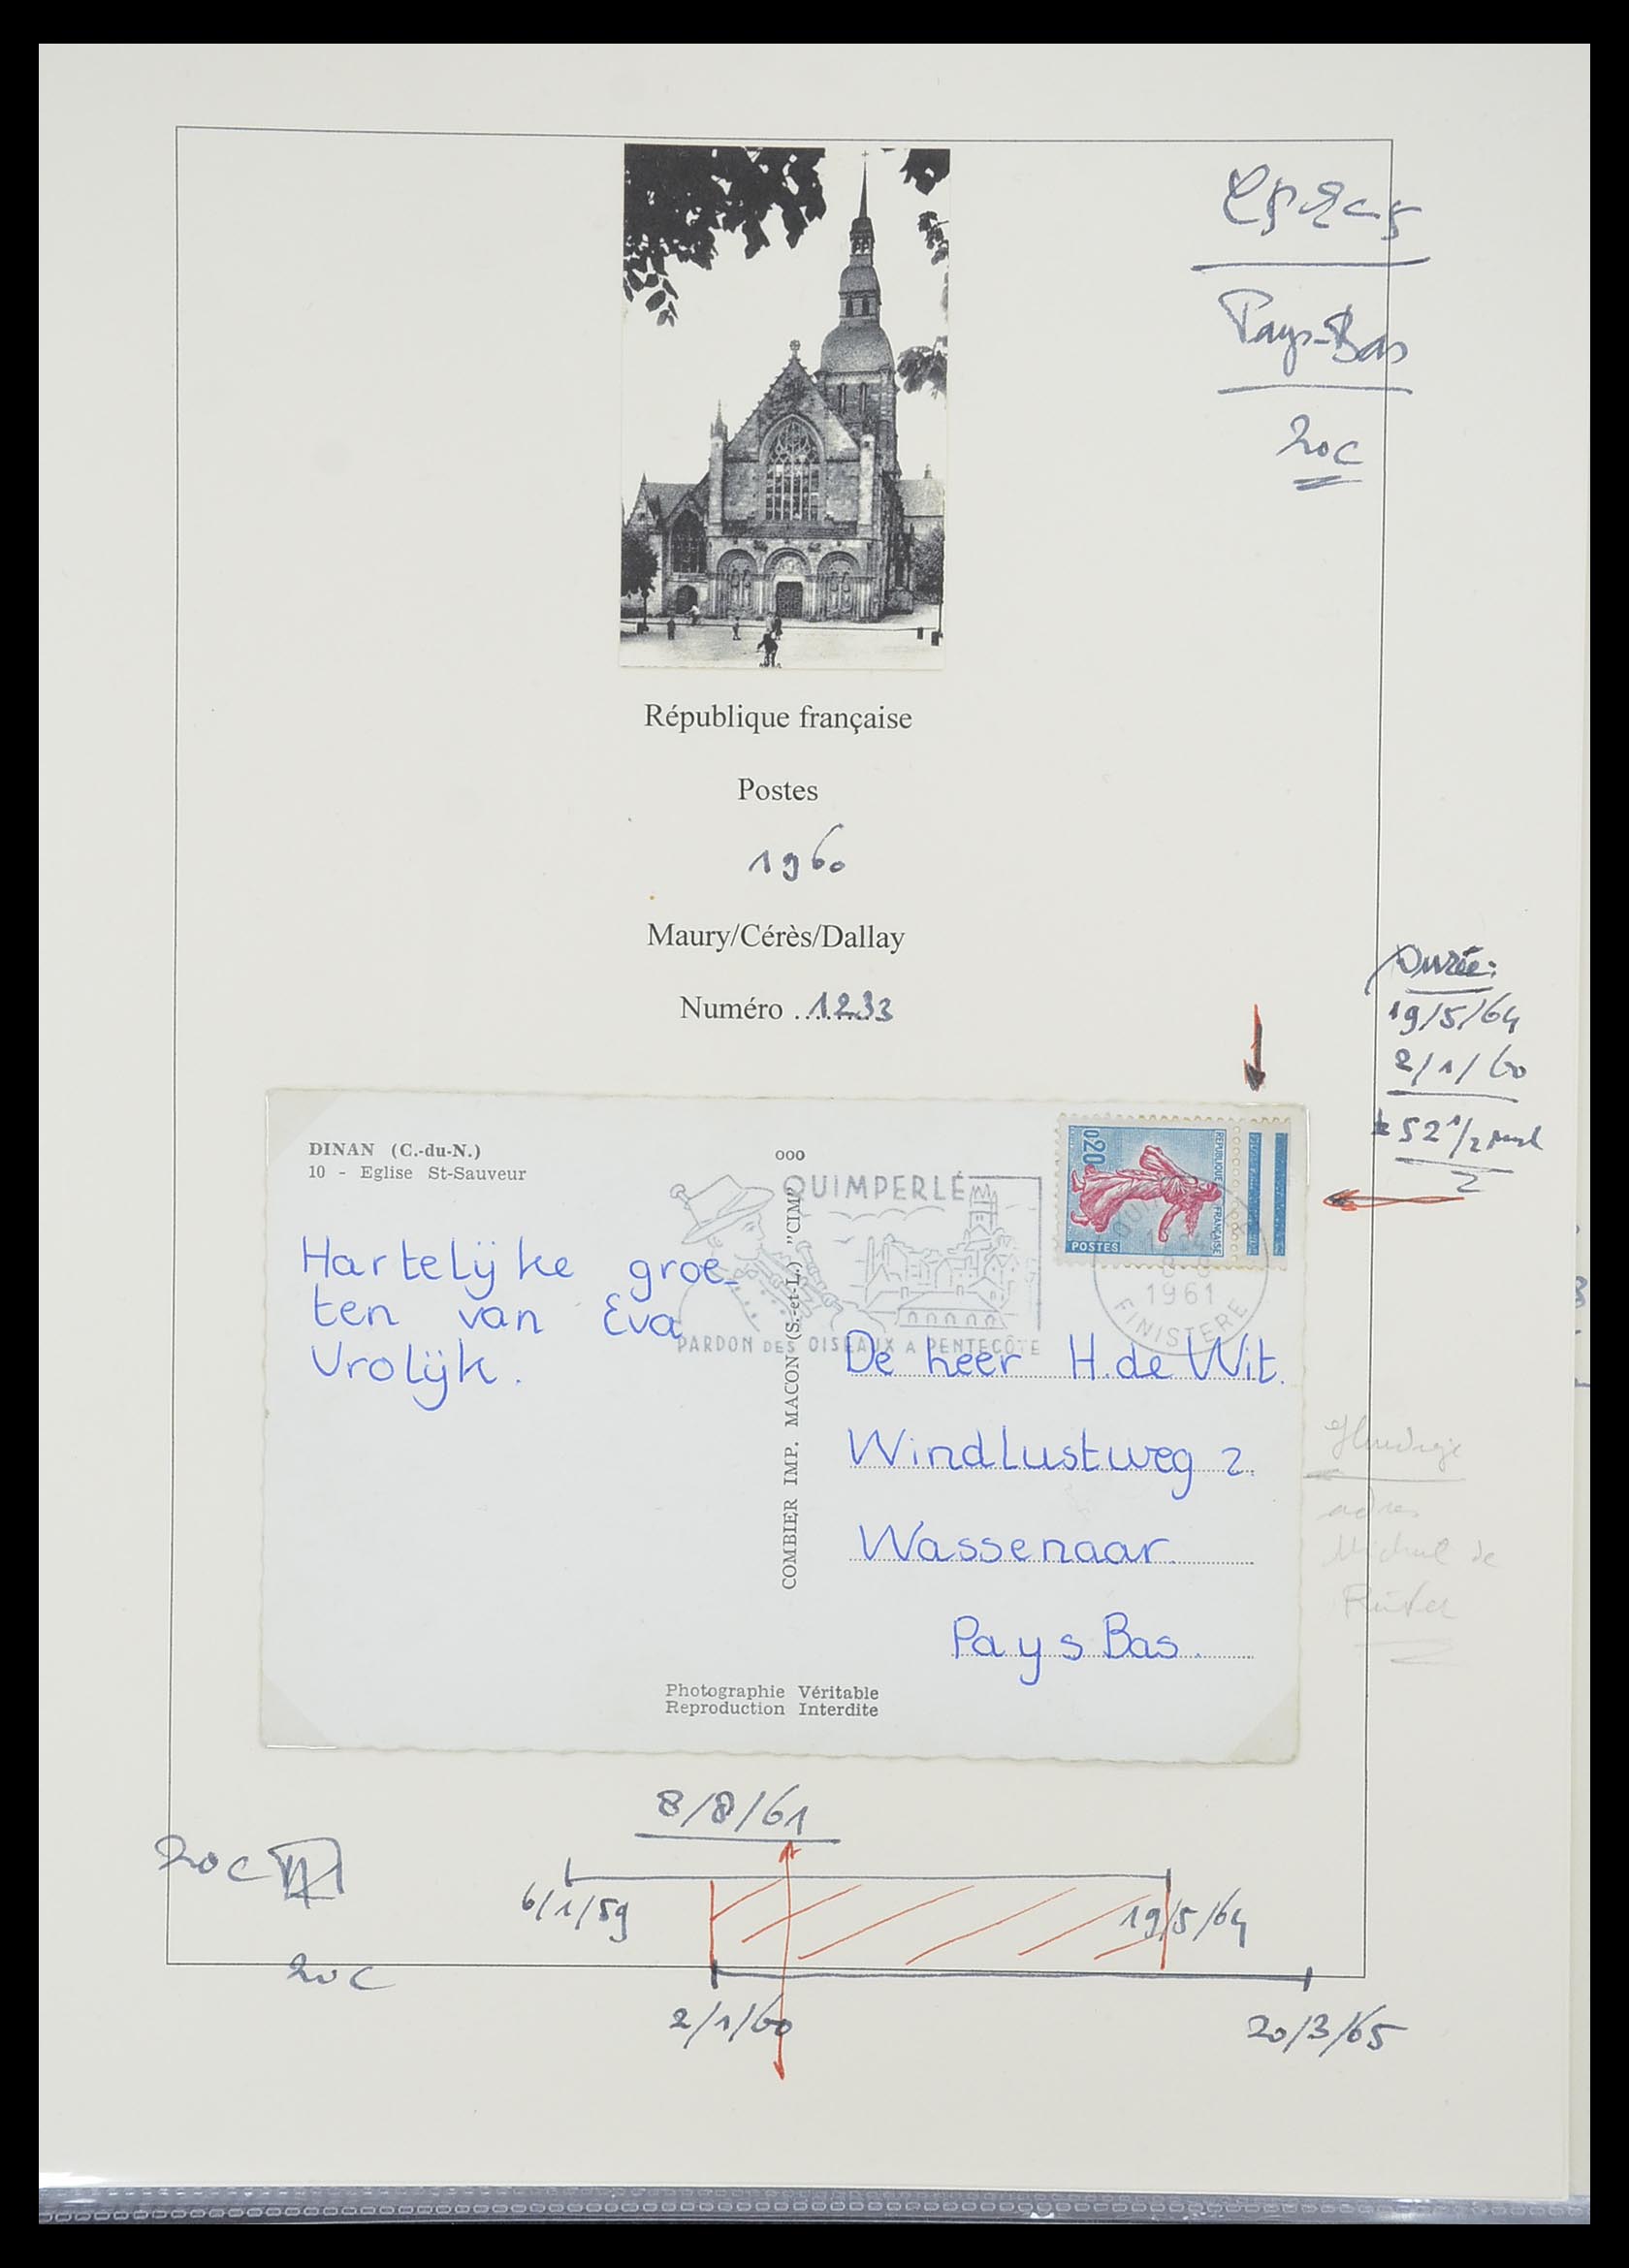 Pays-Bas
20c
République française
Postes
1960
Maury/Cérès/Dallay
Numéro ........1233
Durée:
19/5/64
2/1/60
52 1/2
DINAN (C.-du-N.)
10 - Eglise St-Sauveur
ooo
QUIMPERLÉ
PARDON DES OISEAUX A PENTECÔTE
0,20
REPUBLIQUE FRANÇAISE
POSTES
1961
FINISTERE
Hartelijke groe-
ten van Eva
Vrolijk.
COMBIER IMP. MACON (S.-et-L.) "CIM"
De heer H. de Wit.
Windlustweg 2.
Wassenaar
Pays Bas.
Photographie Véritable
Reproduction Interdite
adres
de
8/8/61
20c
6/1/59
19/5/64
20c
2/1/60
20/3/65